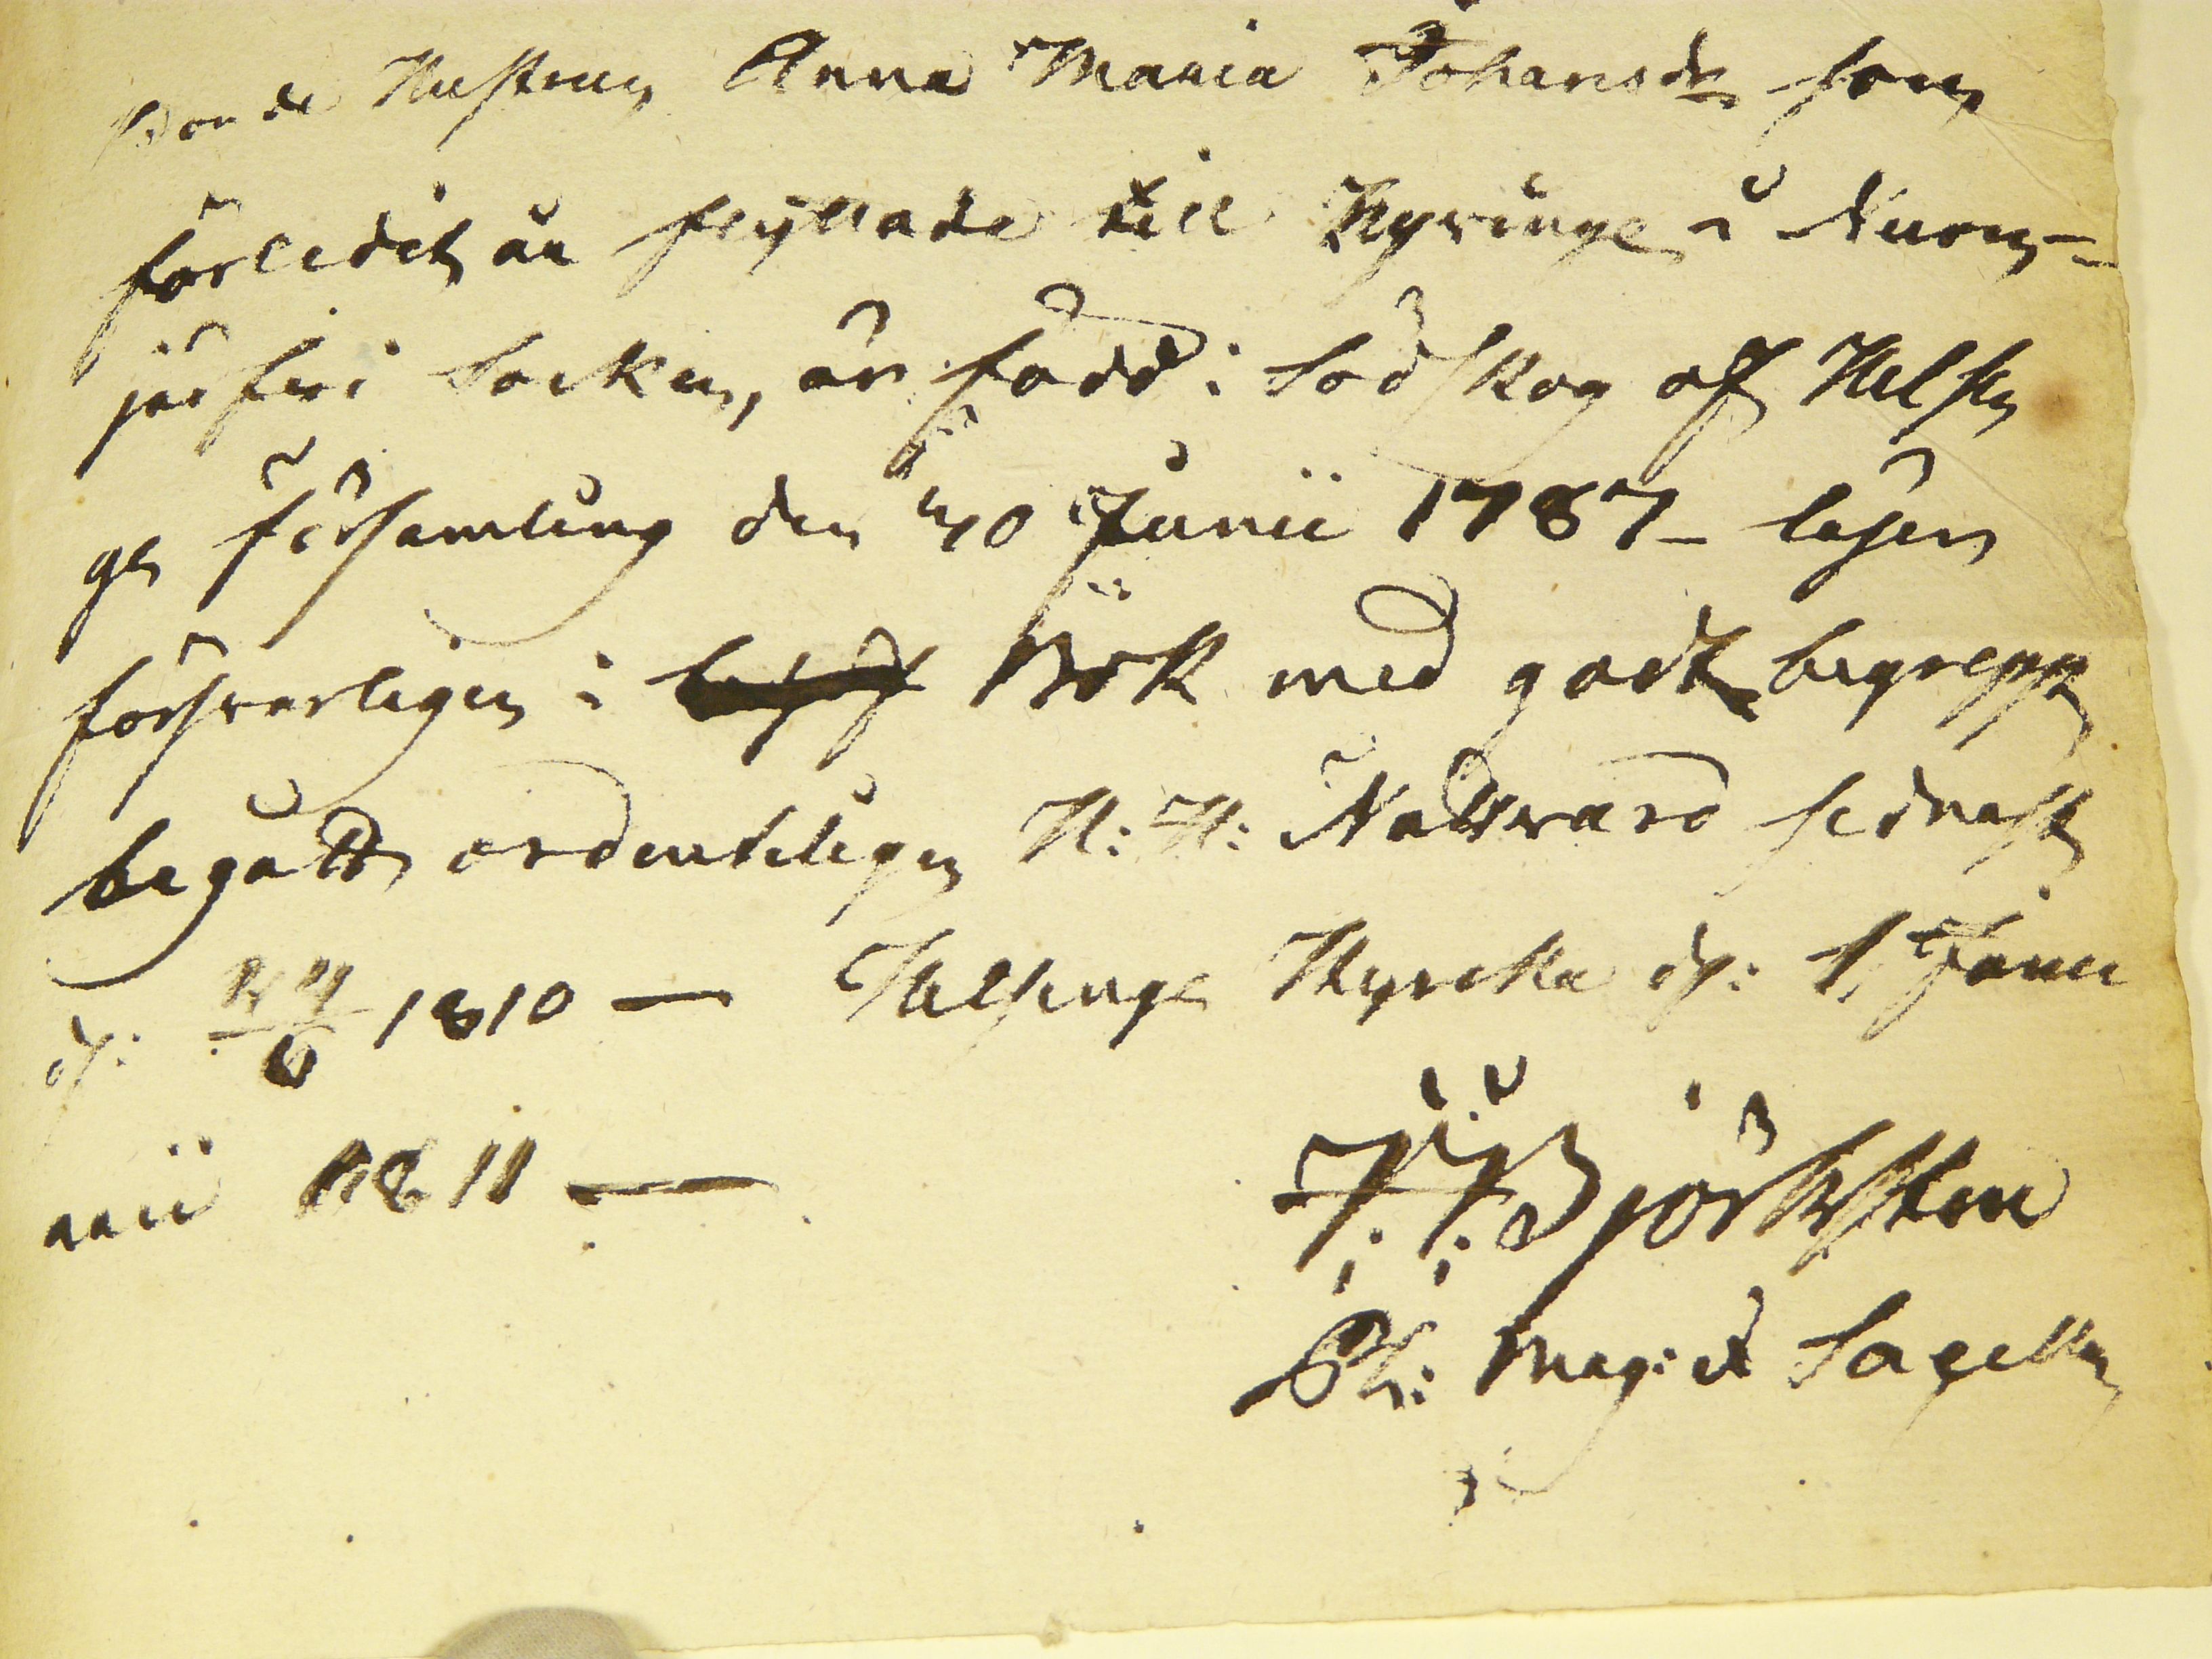 Bonde Hustrun Anna Maria Johansdr som
förledit år flyttade till Kyringe i Nurm-
järfvi Socken, är född i Södskog af Helsin
ge församling den 10 Junii 1787 - läser
försvarligen i Bok med godt begrepp
begått ordenteligen H: H: Nattvard sednast
d: 24/6 1810 — Helsinge Kyrcka d: 1. Janu
arii 1811 —
J. J. Björksten
Ph: Mag: et Sacell